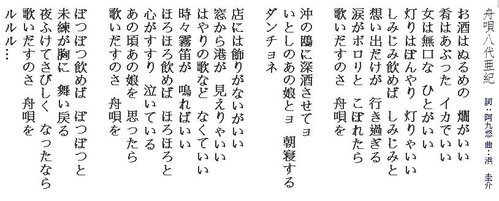 舟唄八代亜紀 詞:阿久悠 曲:浜 圭介
お酒はぬるめの 燗がいい
肴はあぶった イカでいい
女は無口な ひとがいい
灯りはぼんやり 灯りゃいい
しみじみ飲めば しみじみと
想い出だけが 行き過ぎる
涙がポロリと こぼれたら
歌いだすのさ 舟唄を
沖の鴎に深酒させてョ
いとしのあの娘とョ 朝寝する
ダンチョネ
店には飾りがないがいい
窓から港が 見えりゃいい
はやりの歌など なくていい
時々霧笛が 鳴ればいい
ほろほろ飲めば ほろほろと
心がすすり 泣いている
あの頃あの娘を 思ったら
歌いだすのさ 舟唄を
ぽつぽつ飲めば ぽつぽつと
未練が胸に 舞い戻る
夜ふけてさびしく なったなら
歌いだすのさ 舟唄を
ルルル…